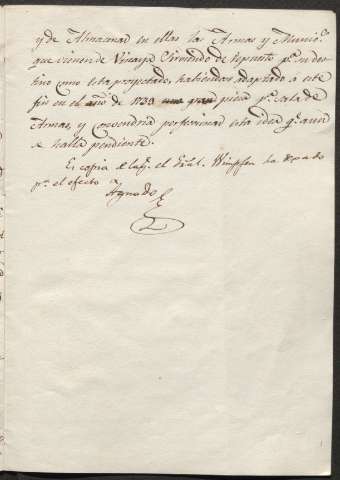 y de Almazenar en ellas las Armas y Munic.s
que vienen de Vizcaya sirviendo de deposito p.a su des-
tino como esta proyectado, haviendose adaptado a este
fin en el año de 1733 una gran pieza p.a Sala de
Armas, y convendria perfeccionar esta idea q.e aun
se halla pendiente.
Es copia de la q.e el Gral. Wimpffen ha dexado
p.a el efecto
Aguado